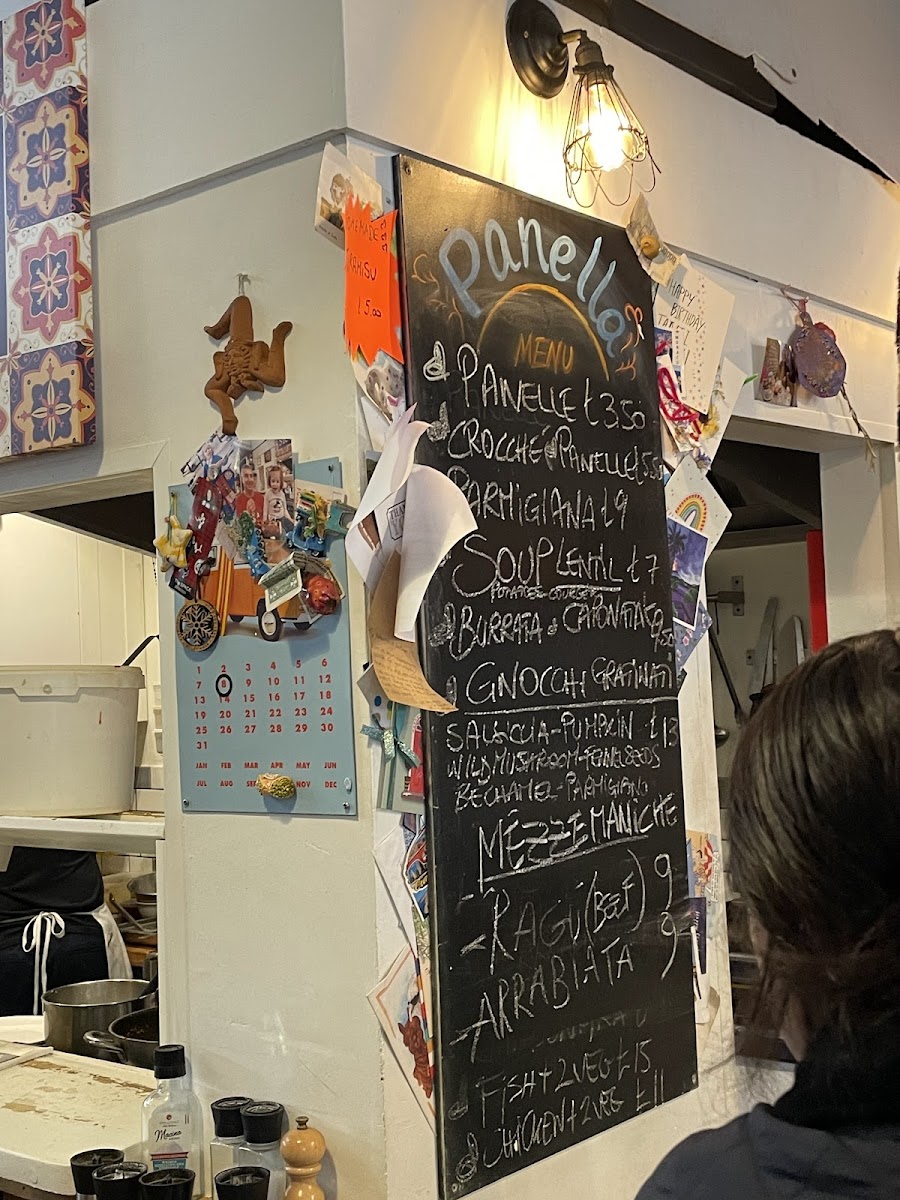 Panella
MENU
PANELLE £3.50
CROCCHÉ PANELLE £5.50
PARMIGIANA £9
SOUP LENTIL £7
BURRATA CAPONATINA 9.50
GNOCCHI GRATINATI
SALSICCIA-PUMPKIN - £13
WILD MUSHROOM-FENNEL SEEDS
BECHAMEL-PARMIGIANO
MEZZE MANICHE
- RAGÚ (BEEF) 9
- ARRABIATA 9
FISH + 2 VEG £15
CHICKEN + 2 VEG £11
£5.00
HAPPY
BIRTHDAY
1 2 3 4 5 6
7 8 9 10 11 12
13 14 15 16 17 18
19 20 21 22 23 24
25 26 27 28 29 30
31
JAN FEB MAR APR MAY JUN
JUL AUG SE NOV DEC